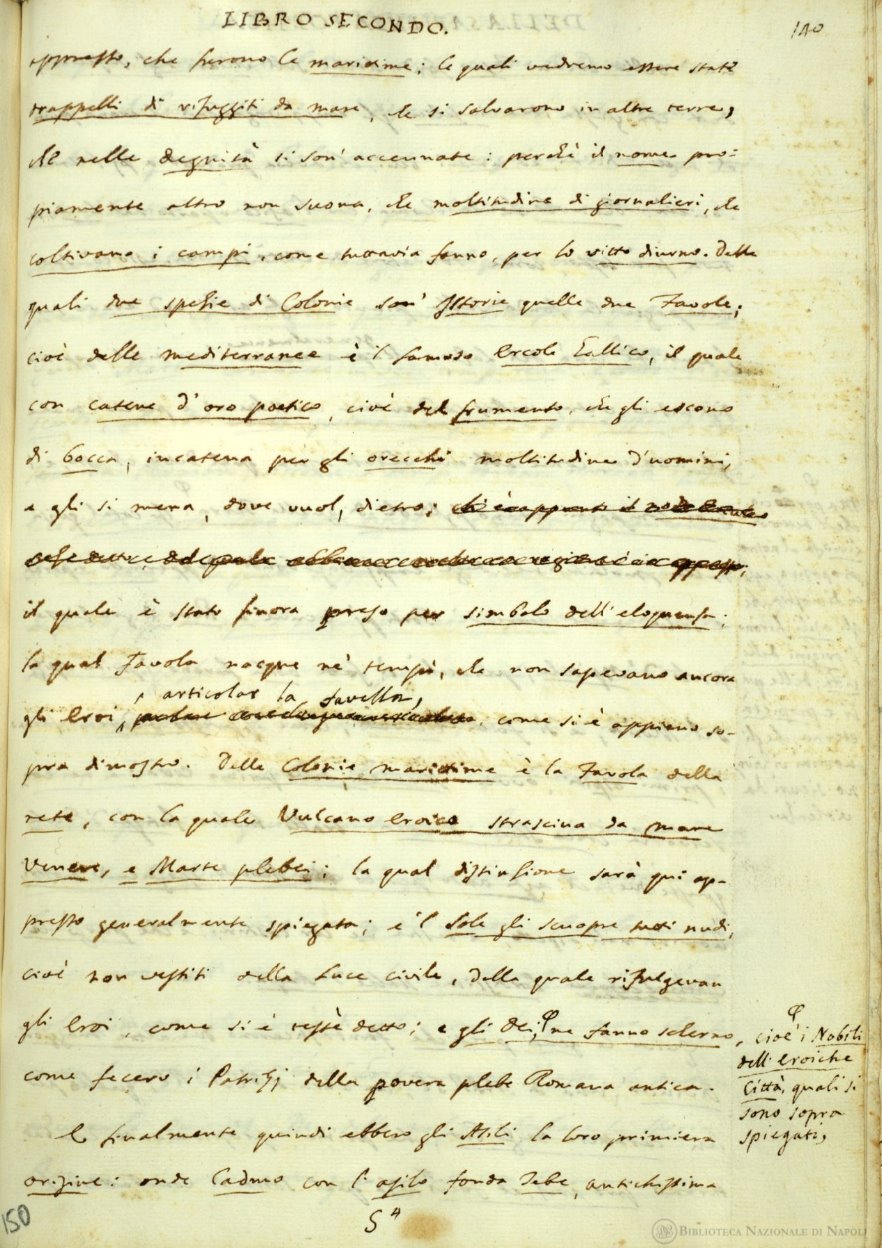 LIBRO SECONDO.
140
appresso, che furono le marittime; le quali vedremo essere state
drappelli di rifuggiti da mare, che si salvarono in altre terre,
che nelle degnità si son' accennate: perchè il nome pro-
piamente altro non suona, che moltitudine di giornalieri, che
coltivano i campi, come tuttavia fanno, per lo vitto diurno. Delle
quali due spezie di Colonie son' Istorie quelle due Favole;
cioè delle mediterranee è 'l famoso Ercole Gallico, il quale
con catene d'oro poetico, cioè del frumento, che gli escono
di bocca, incatena per gli orecchi moltitudine d'uomini,
e gli si mena, dove vuol, dietro;
il quale è stato finora preso per simbolo dell'eloquenza;
la qual Favola nacque ne' tempi, che non sapevano ancora
articolar la favella,
gli Eroi, come si è appieno so-
pra dimostro. Delle Colonie marittime è la Favola della
rete, con la quale Vulcano eroico strascina da mare
Venere, e Marte plebei; la qual distinzione sarà qui ap-
presso generalmente spiegata; e 'l Sole gli scuopre tutti nudi,
cioè non vestiti della luce civile, della quale rifulgevan
gli Eroi, come si è testè detto; e gli dei, ne fanno scherno,
come fecero i Patrizj della povera plebe Romana antica.
cioè i Nobili
dell'eroiche
Città, quali si
sono sopra
spiegati,
E finalmente quindi ebbero gli Asili la loro primiera
origine: onde Cadmo con l'asilo fonda Tebe, antichissima
150
S 4
BIBLIOTECA NAZIONALE DI NAPOLI